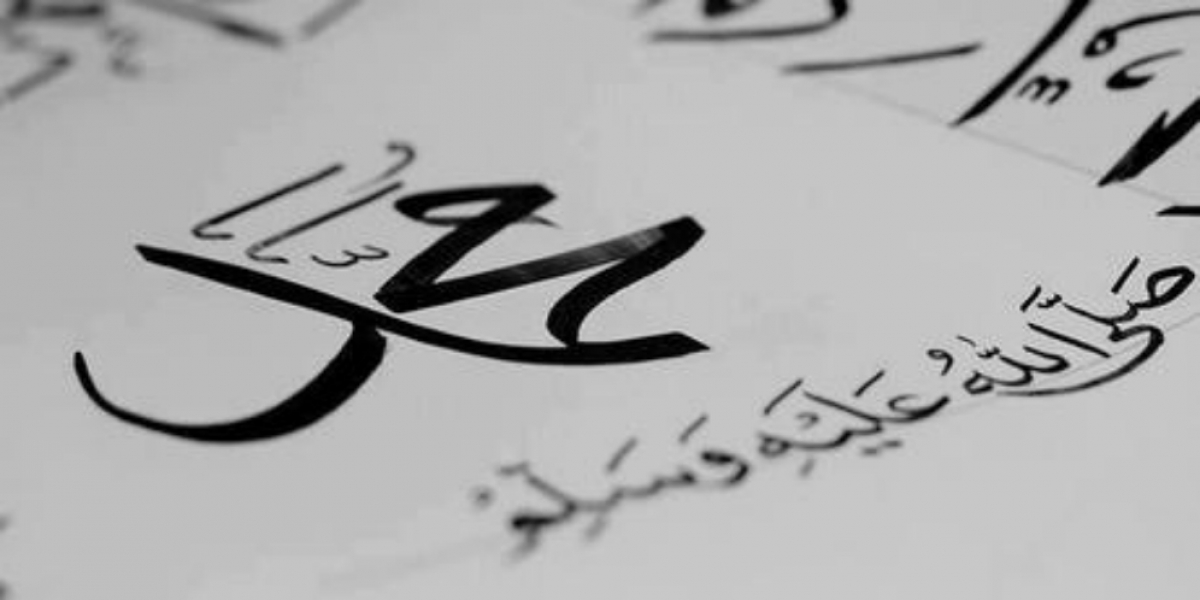 محمد
صَلَّى اللهُ عَلَيْهِ وَسَلَّمْ